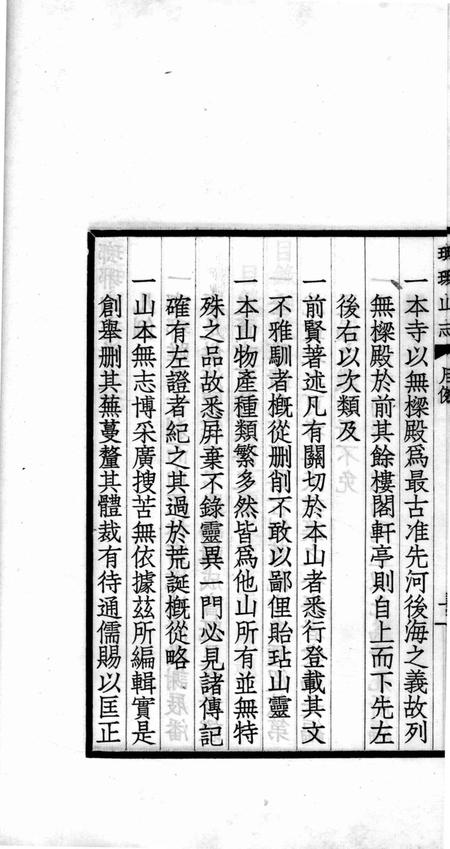 瑯琊山志
一本寺以無樑殿爲最古准先河後海之義故列
無樑殿於前其餘樓閣軒亭則自上而下先左
後右以次類及
一前賢著述凡有關切於本山者悉行登載其文
不雅馴者概從刪削不敢以鄙俚貽玷山靈
一本山物產種類繁多然皆爲他山所有並無特
殊之品故悉屏棄不錄靈異一門必見諸傳記
確有左證者紀之其過於荒誕概從略
一山本無志博采廣搜苦無依據茲所編輯實是
創舉刪其蕪蔓釐其體裁有待通儒賜以匡正